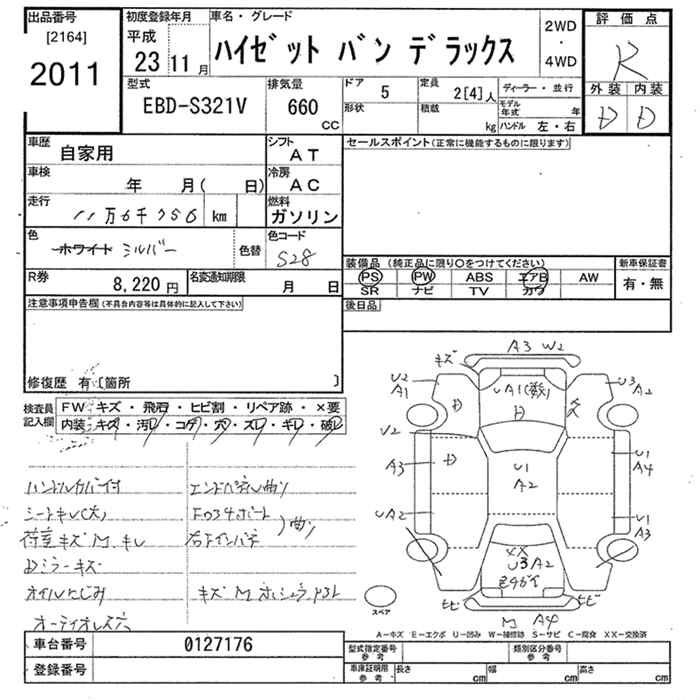 出品番号
[2164]
2011
初度登録年月
平成
23 11 月
車名・グレード
ハイゼット バン デラックス
2WD
・
4WD
評価点
R
外装 内装
D D
型式
EBD-S321V
排気量
660
CC
ドア 5
形状
定員 2[4]人
積載 kg
ディーラー・並行
モデル年式 年
ハンドル 左・右
車歴
自家用
シフト
AT
車検
年 月( 日)
冷房
AC
走行
11万6千756 km
燃料
ガソリン
色
ホワイト シルバー
色替
色コード
S28
R券
8,220 円
名変通知期限
月 日
セールスポイント(正常に機能するものに限ります)
装備品(純正品に限り○をつけてください)
新車保証書
PS PW ABS エアB AW
SR ナビ TV カワ
有・無
後日品
注意事項申告欄(不具合内容等は具体的に記入して下さい)
修復歴 有〔箇所 〕
検査員
記入欄
FW キズ・飛石・ヒビ割・リペア跡・×要
内装 キズ・汚レ・コゲ・穴・スレ・キレ・破レ
ハンドルカバー付
シートキレ(大)
荷室キズ M、キレ
Dミラーキズ
オイルにじみ
オーディオレス穴
エンドパネル曲り
曲り
A3 W2
キズ
U2
A1
UA1(数)
U3
A2
D
D
U2
D
A3
U1
A2
U1
A4
UA2
U1
A3
XX
U3 A2
ヒビ
ヒビ
M A4
スペア
A-キズ E-エクボ U-凹み W-補修跡 S-サビ C-腐食 XX-交換済
車台番号 0127176
登録番号
型式指定番号
参考
類別区分番号
参考
車庫証明用
参考
長さ cm
幅 cm
高さ cm